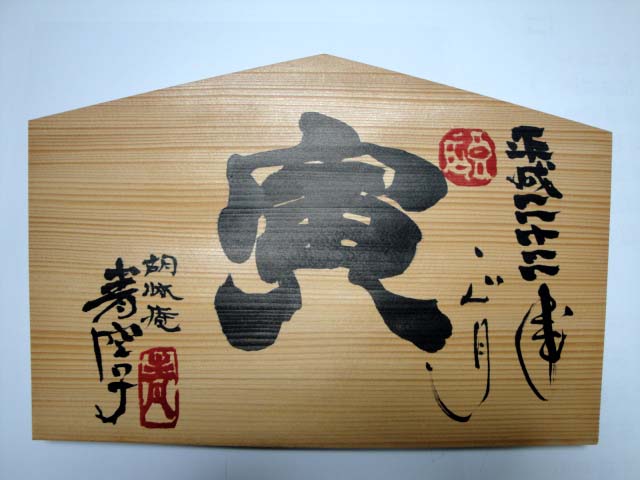 平成二十二年
正月
寅
胡州庵
青空子